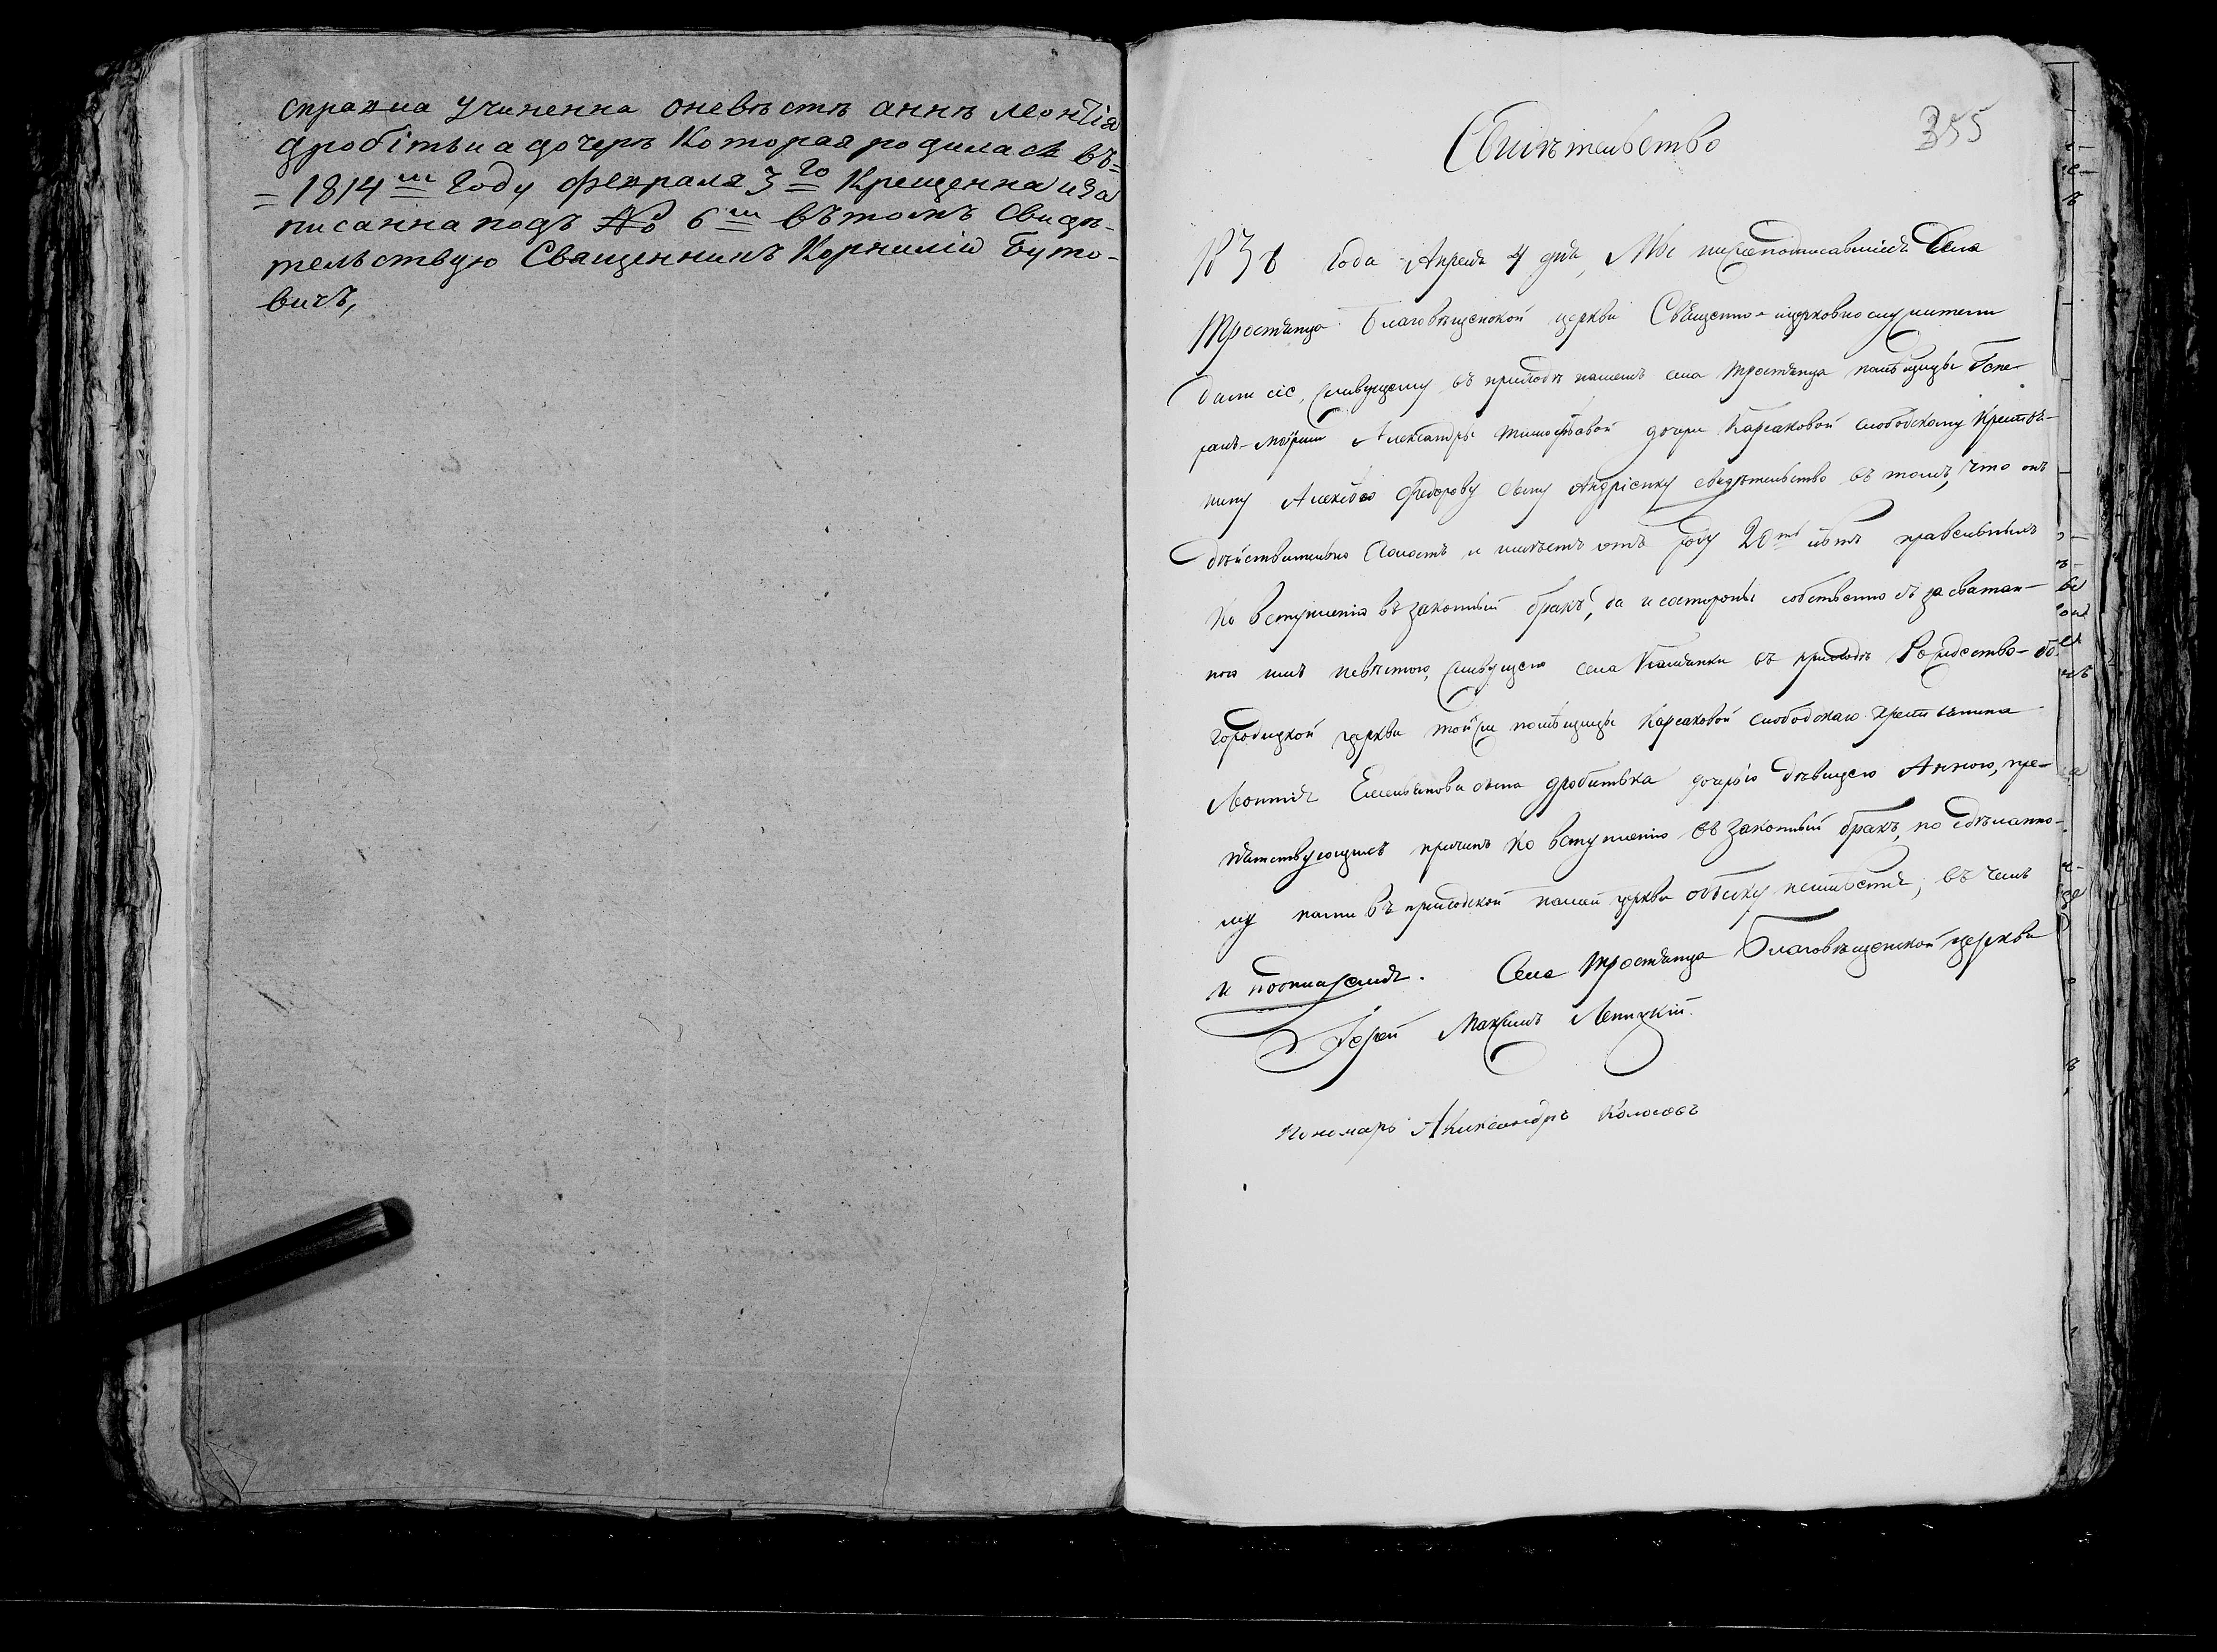 справка учиненна оневѣстѣ аннѣ леонтія
дробітька дочерѣ Которая родилась въ=
=1814м Году февраля 3го Крещенна иза
писанна подъ № 6м вътомъ Свидѣ-
тельствую Священникъ Корнилій Буто-
вичъ,
355
Свидѣтельство
183 года Апреля 4 дня, Мы нижеподписавшіеся Села
Тростянца Благовѣщенской церкви Священно-ицерковнослужители
дали сіе, жившему въ приходѣ нашемъ села Тростянца помѣщицы Гене-
ралъ-маіорши Александры Тимофѣевой дочери Карсаковой слободскому Крестья-
нину Алексѣю Федорову сыну Андріенку свидѣтельство въ томъ, что онъ
дѣйствительно Холостъ и имѣетъ отъ роду 20ть лѣтъ
Ко вступленію въ законный бракъ, да и состороны собственно съ засватан-
ною имъ невѣстою, живущею села въ приходѣ Рождество-бо-
городицкой церкви тойже помѣщицы Карсаковой слободскаго Крестьянина
Леонтія Емельянова сына дробитька дочерью дѣвицею Анною, пре-
пятствующихъ причинъ Ко вступленію въ законный бракъ, по сдѣланно-
му нами въ приходской нашей церкви обыску неимѣется, въ чемъ
и подписуемся. Села Тростянца Благовѣщенской церкви
Іерей Максимъ Лепицкій.
Пономарь Александръ Колосовъ